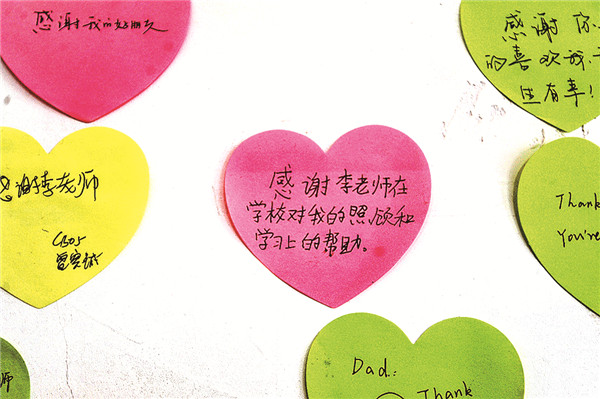 感谢我的好朋友
感谢你
的喜欢我
生有幸!
感谢李老师
感谢李老师在
学校对我的照顾和
学习上的帮助。
Thank
You're
Dad:
Thank
师